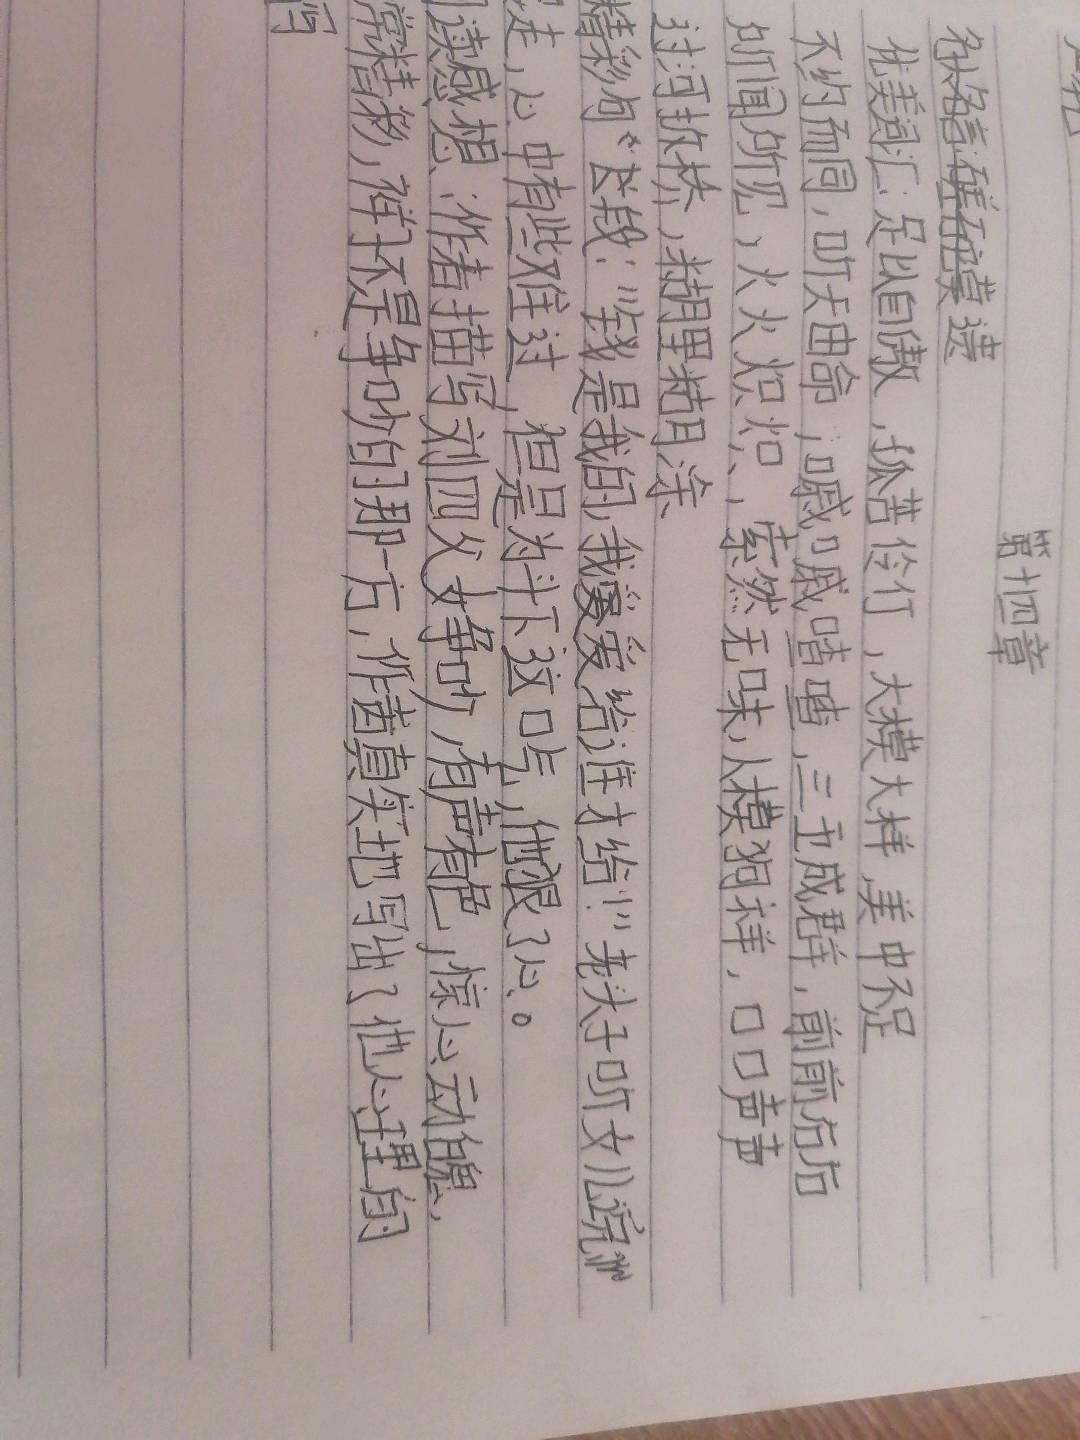 第十四章
优美词汇：足以自傲，孤苦伶仃，大模大样，美中不足
不约而同，听天由命，嘁嘁喳喳，三五成群，前前后后
所闻所见，火火炽炽，索然无味，人模狗样，口口声声
过河拆桥，糊里糊涂
精彩句段："钱是我的，我爱给谁才给！"老头子听女儿说
走，心中有些难过，但是为斗下这口气，他狠了心。
读感想：作者描写刘四父女争吵有声有色，惊心动魄，
常精彩，祥子不是争吵的那一方，作者真实地写出了他心理的
写